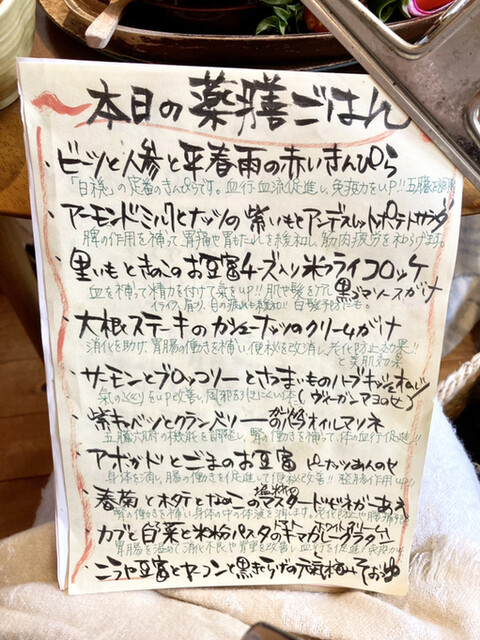 本日の薬膳ごはん
・ビーツと人参と平春雨の赤いきんぴら
の定番のきんぴらです。血行血流促進し、免疫力をUP!!五臓を
・アーモンドミルクとナッツの紫いもとアンデスレットポテトサラダ
脾の作用を補って胃痛や胃もたれを緩和し、筋肉疲労を和らげます。
・里いもときのこのお豆富チーズ入り米フライコロッケ
血を補って精力を付けて気をUP!!肌や髪を 黒ゴマソースがけ
イライラ、肩こり、目の疲れも緩和!!白髪予防にも。
・大根ステーキのカシューナッツのクリームがけ
消化を助け、胃腸の働きを補い便秘を改消し、老化防止効果!!
と美肌効果
・サーモンとブロッコリーとさつまいものハーブ
気の をUP改善し、風邪を引きにくい体 (ヴィーガンマヨのせ)
・紫キャベツとクランベリーの オイルマリネ
五臓六腑の機能を調整し、腎の働きを補って体の血行促進!!
・アボガドとごまのお豆富 ピーナッツあんのせ
身体を潤し、腸の働きを促して便秘改善!!
・春菊とホタテとなめこの塩糀のマスタードビネガーあえ
の働きを補い身体の中の体液を潤します。
・カブと白菜と米粉パスタのトマトキマカレーグラタン ホワイト
胃腸を温めて消化不良や胃重を改善し
・ニラや豆富とベーコンと黒きくらげの元気梅みそおゆ